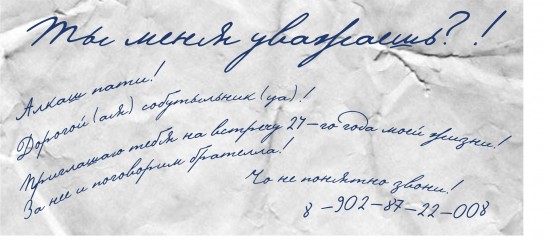 Ты меня уважаешь?!
Алкаш пати!
Дорогой(ая) собутыльник(ца)!
Приглашаю тебя на встречу 27-го года моей жизни!
За нее и поговорим брателла!
Чо не понятно звони!
8-902-87-22-008